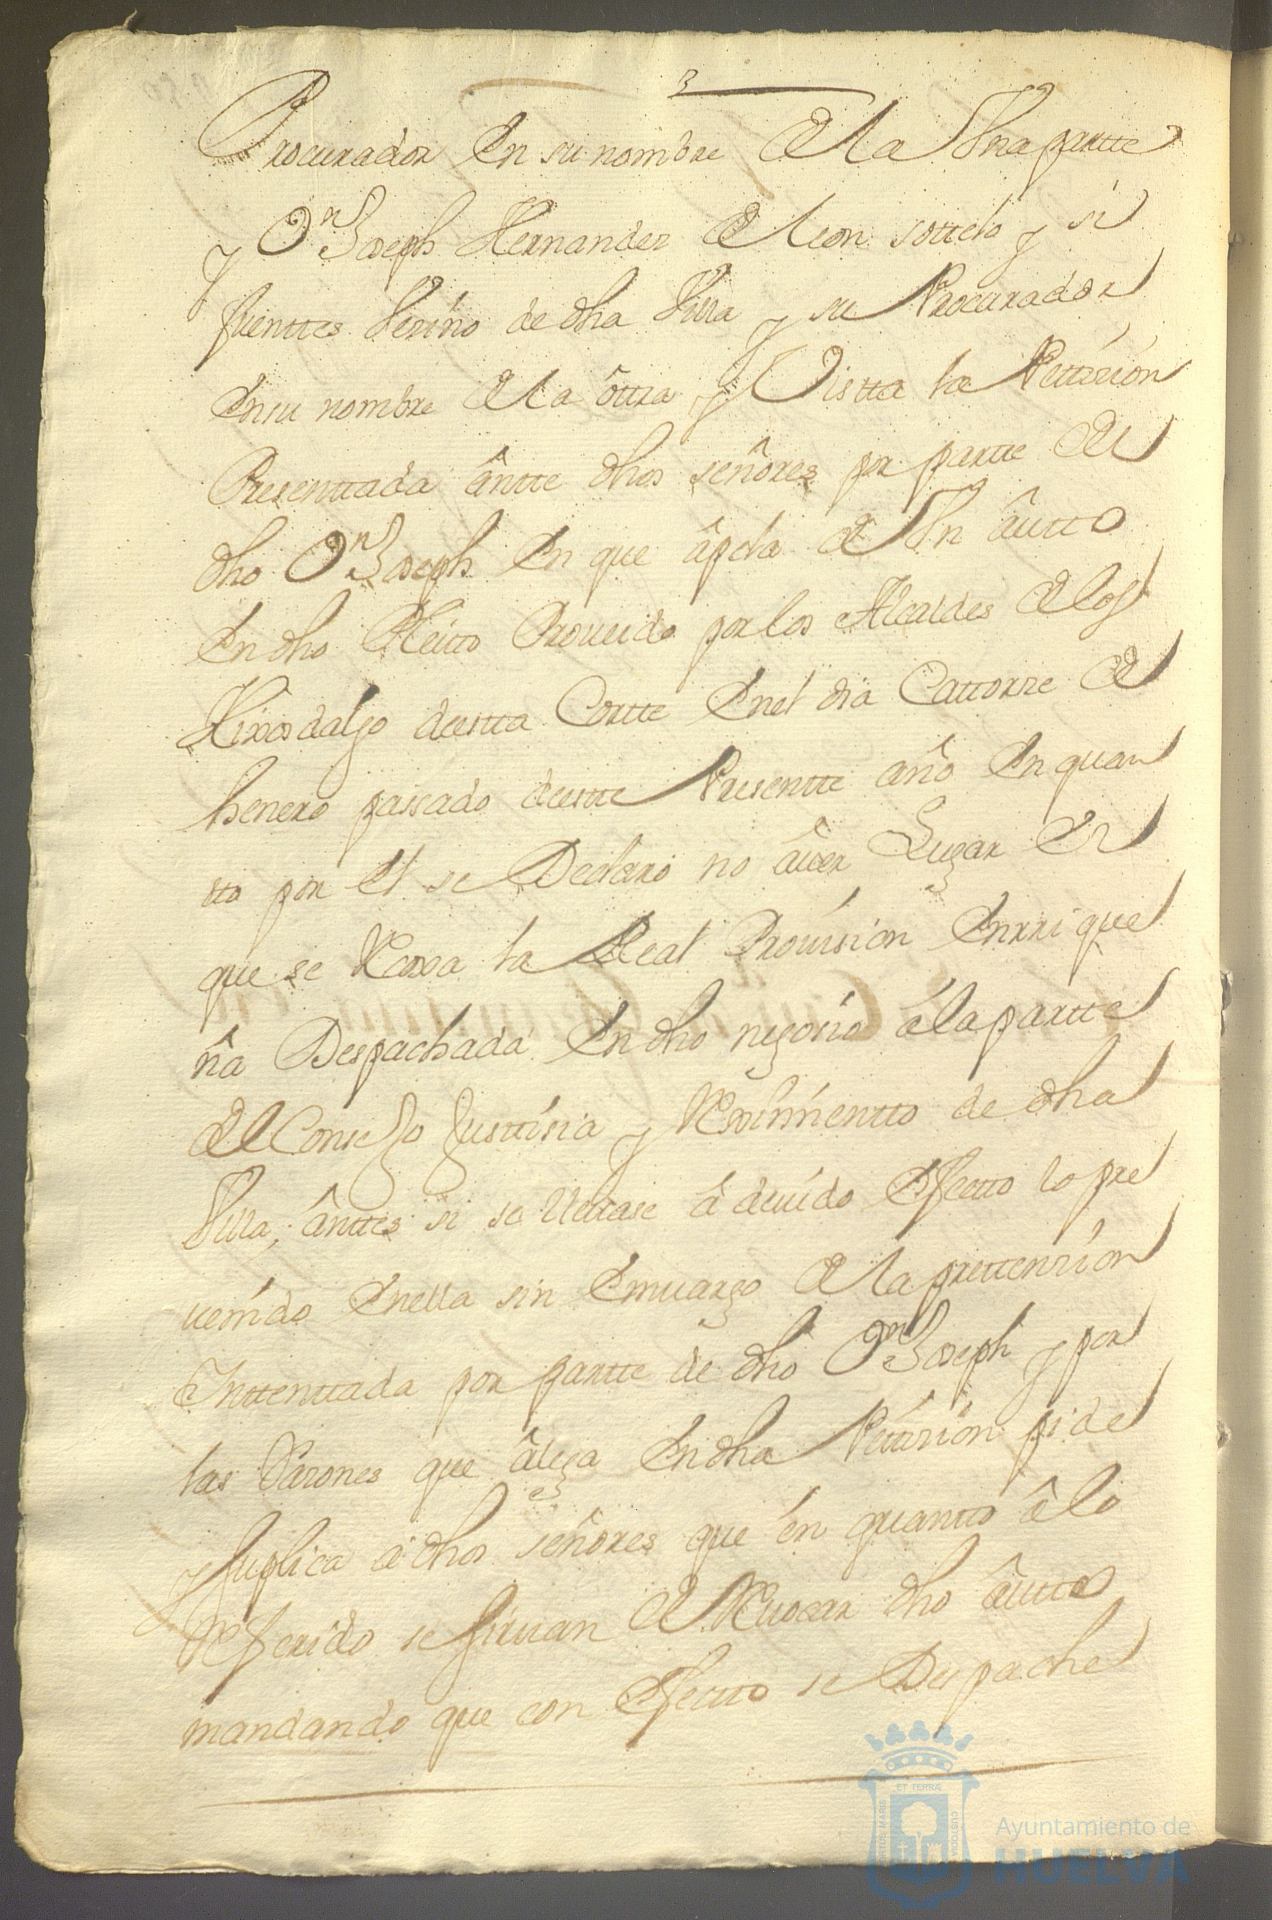 Procurador En su nombre De la Una partte
y Dn Joseph Hernandez De leon sottelo y si
fuenttes Vezino de dha Villa y su Procurador
En su nombre De la ôttra y Vistta la Petizion
Presenttada ântte dhos señores por partte Del
dho Dn Joseph En que âpela De Un âutto
En dho Pleitto Proueido por los Alcaldes De los
Hixosdalgo de estta Cortte En el dia Cattorze De
henero passado de estte Presentte año En quan
tto por El se Declaro no âuer Lugar En
que se Recoxa la Real Provision Enrrique
ña Despachada En dho negozio â la partte
Del Consejo Justtisia y Reximientto de dha
Villa; ânttes si se lleuase â deuido Efectto lo pre
uenido En ella sin Emuargo De la prettension
Inttenttada por partte de dho Dn Joseph y por
las Razones que âlega En dha Petizion pide
y suplica â dhos señores que en quantto â lo
Referido se siruan De Reuocar dho âutto
mandando que con Efectto se Despache
ET TERRÆ
Ayuntamiento de
HUELVA